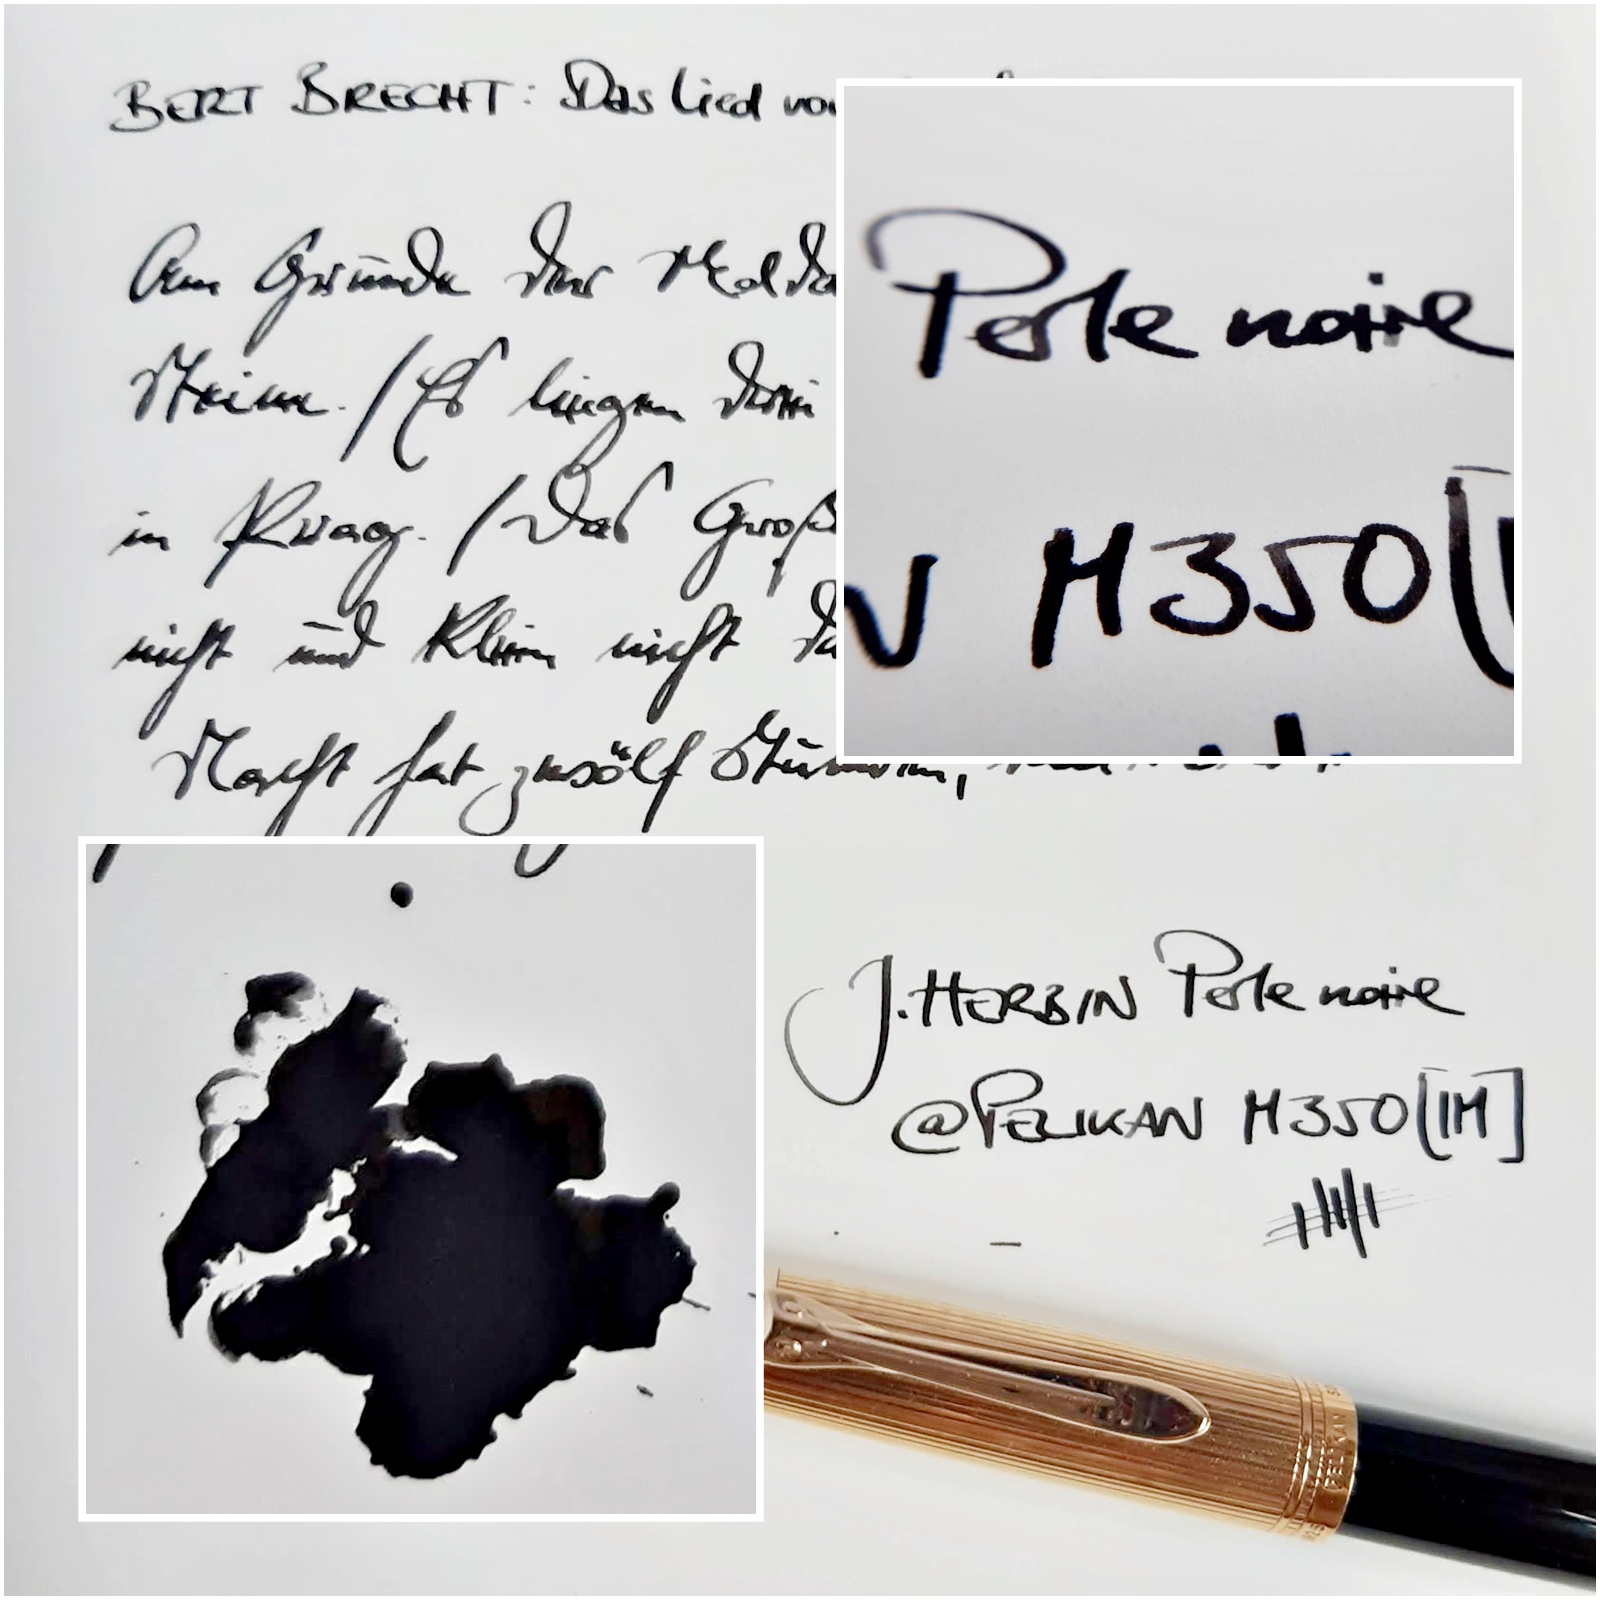 BERT BRECHT: Das Lied von
Am Grunde der Molda
Steine. / Es liegen drei
in Prag. / Das Große
nicht und klein nicht
Nacht hat zwölf Stunden,
Perle noire
N M350[
J. HERBIN Perle noire
@PELIKAN M350[IM]
PELIKAN